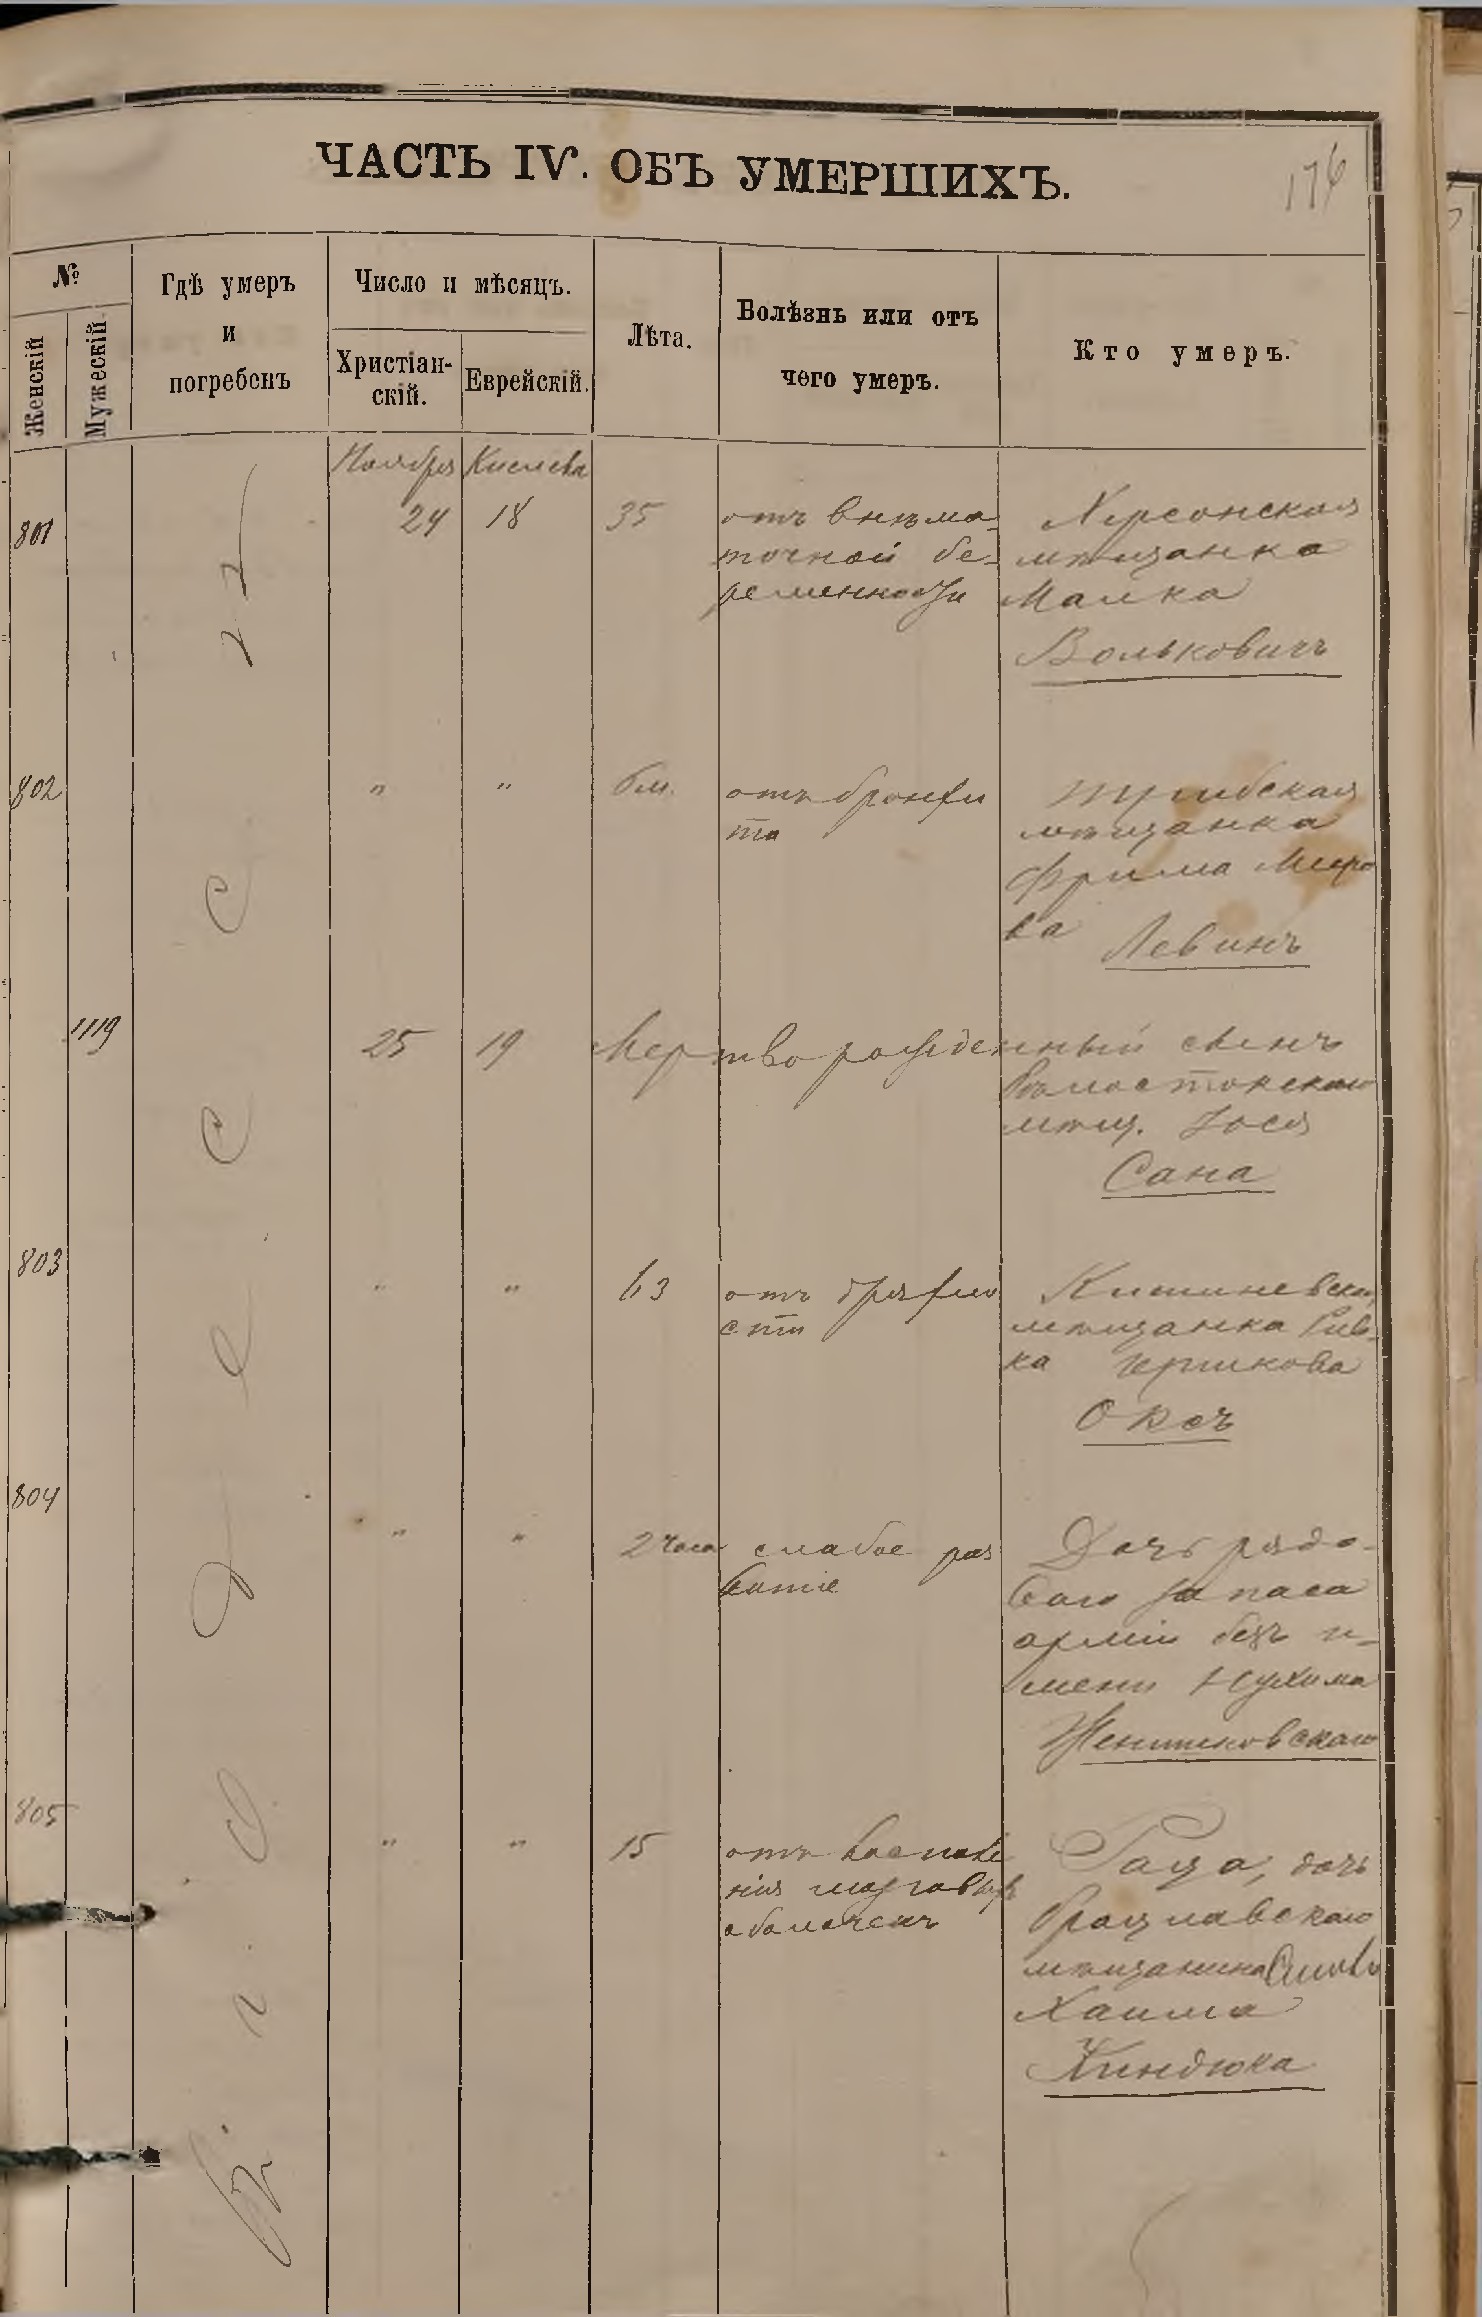 ЧАСТЬ IV. ОБЪ УМЕРШИХЪ.
176
№
Женскій
Мужескій
Гдѣ умеръ
и
погребенъ
Число и мѣсяцъ.
Христіан-
скій.
Еврейскій.
Лѣта.
Болѣзнь или отъ
чего умеръ.
Кто умеръ.
Ноября Кислева
801 24 18 35
отъ внѣма-
точной бе-
ременности
Херсонская
мѣщанка
Малка
Вольковичъ
802 " " 6 м.
отъ бронхи
та
мѣщанка
Фрима Меиро
ва
Левинъ
1119 25 19 Мертворожденный сынъ
Бѣлостокскаго
мѣщ. Іося
Сана
803 " " 63
отъ дряхло
сти
Кишиневская
мѣщанка Рив-
ка Гершкова
Оксъ
804 " " 2 часа
слабое раз
витіе
Дочь рядо-
ваго запаса
арміи безъ и-
мени Нухима
805 " " 15
отъ воспале
нія мозговыхъ
оболочекъ
дочь
Брацлавскаго
мѣщанина
Хаима
Киндюка
въ г. Одессѣ